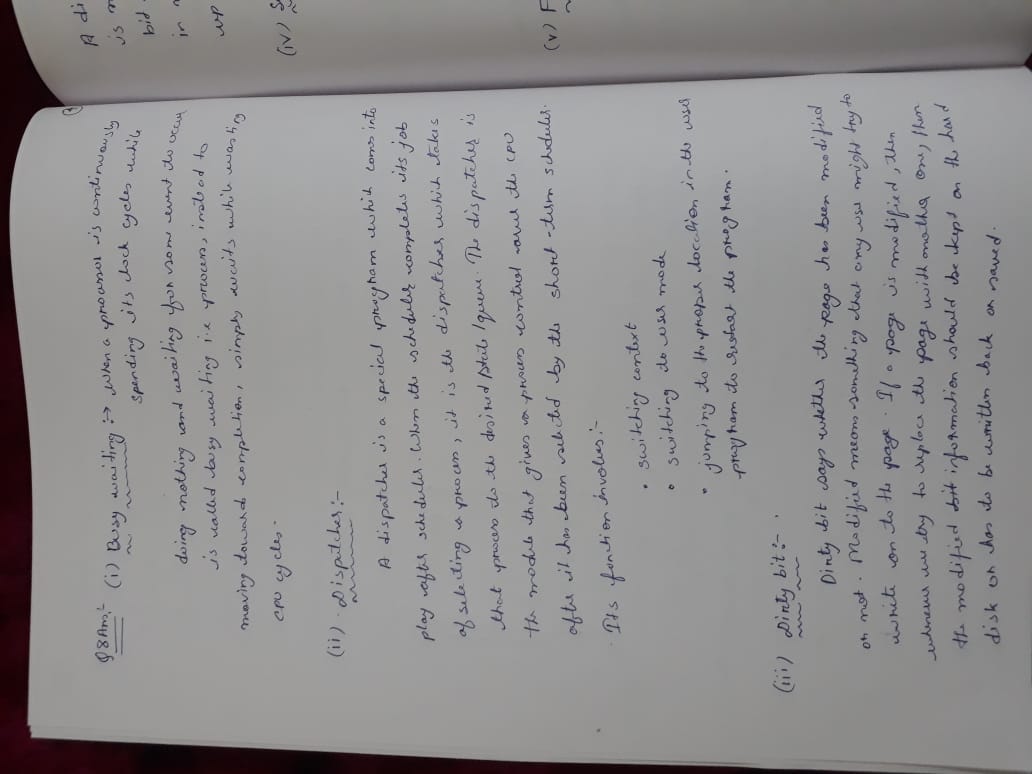 Q8 Ans:- (i) Busy waiting :→ When a processor is continuously
spending its clock cycles while
doing nothing and waiting for some event to occur
is called busy waiting i.e process, instead to
moving toward completion, simply waits while wasting
CPU cycles.
(ii) Dispatcher:-
A dispatcher is a special program which comes into
play after scheduler. When the scheduler completes its job
of selecting a process, it is the dispatcher which takes
that process to the desired state/queue. The dispatcher is
the module that gives a process control over the CPU
after it has been selected by the short-term scheduler.
Its function involves:-
• switching context
• switching to user mode
• jumping to the proper location in the user
program to restart the program.
(iii) Dirty bit:-
Dirty bit says whether the page has been modified
or not. Modified means something that any user might try to
write on to the page. If a page is modified, then
whenever we try to replace the page with another one, then
the modified bit information should be kept on the hard
disk or has to be written back or saved.
A di
is
bid
in
up
(iv) S
(v) F